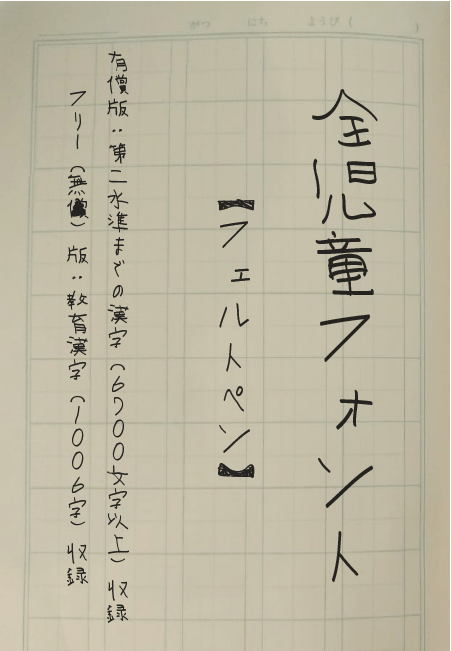 がつ にち ようび( )
全児童フォント
【フェルトペン】
有償版:第二水準までの漢字(6700文字以上)収録
フリー(無償)版:教育漢字(1006字)収録